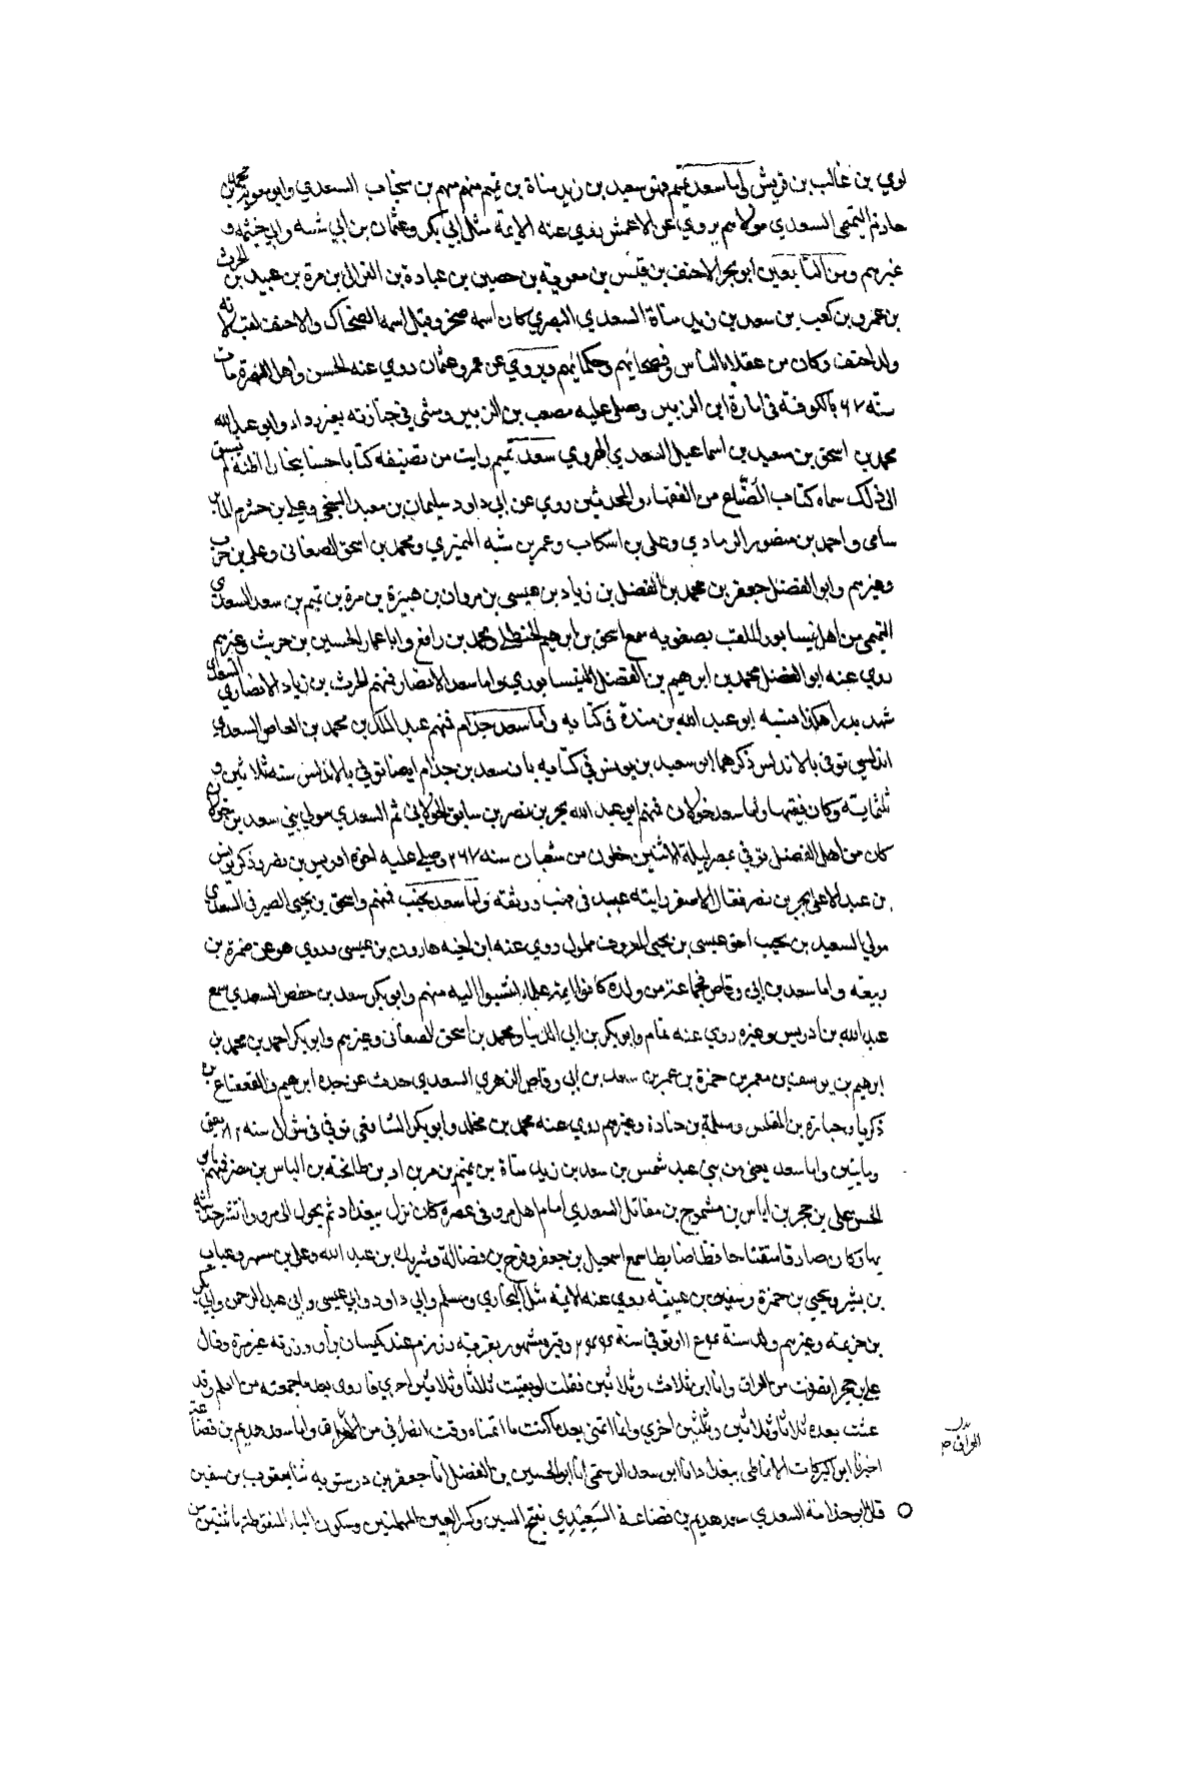 لوي بن غالب بن قريش لي اما سعد تميم فهو سعد بن زيد مناة بن تميم منهم سهم بن سنجاب السعدي وابو معوية محمد بن
حازم التميمي السعدي مولاهم يروي عن الاعمش روي عنه الايمة مثل ابي بكر وعثمان بن ابي شسه وابي خيثمه و
غيرهم ومن التابعين ابو بحر الاحنف بن قيس بن معوية بن حصين بن عبادة بن النزال بن مرة بن عبيد بن الحرث
بن عمرو بن كعب بن سعد بن زيد مناة السعدي البصري كان اسمه صخر وقيل اسمه الضحاك والاحنف لقب لانه
ولد احنف وكان من عقلاء الناس وفصحائهم وحكمائهم ويروي عن عمر وعثمان روي عنه الحسن واهل البصرة مات
سنه ٦٧ بالكوفة في امارة ابن الزبير وصلي عليه مصعب بن الزبير ومشي في جنازته بغير رداء وابو عبد الله
محمد بن اسحق بن سعيد بن اسماعيل السعدي الهروي سعد تميم رايت من تصنيفه كتابا حسنا ببخارا اظنه لم يسبق
الى ذلك سماه كتاب الصُنّاع من الفقهاء والمحدثين روي عن ابي داود سليمان بن معبد السنجي وعلي بن خشرم المابر
سامى واحمد بن منصور الرمادي وعلى بن اشكاب وعمر بن شبه النميري ومحمد بن اسحق الصغانى وعلى بن حرب
وغيرهم وابو الفضل جعفر بن محمد بن الفضل بن زياد بن عيسى بن مروان بن هبيرة بن مرة بن تميم بن سعد السعدي
التميمي من اهل نيسابور الملقب بصفويه سمع اسحق بن ابرهيم الحنظلي ومحمد بن رافع وابا عمار الحسين بن حريث وغيرهم
روي عنه ابو الفضل محمد بن ابرهيم بن الفضل النيسابوري واما سعد الانصار فمنهم الحرث بن زياد الانصاري السعدي
شهد بدرا هكذا نسبه ابو عبد الله بن مندة في كتابه واما سعد جذام فمنهم عبد الملك بن محمد بن العاص السعدي
اندلسي توفى بالاندلس ذكرهما ابو سعيد بن يونس في كتابه بان سعد بن جذام ايضا توفي بالاندلس سنه ثلاثين و
ثلثماية وكان فقيها واما سعد خولان فمنهم ابو عبد الله بحر بن نصر بن سابق الخولاني ثم السعدي مولي بني سعد بن خولان
كان من اهل الفضل توفي بمصر ليلة الاثنين خلون من شعبان سنه ٢٦٧ وصلي عليه اخوه ادريس بن نصر وذكر يونس
بن عبد الاعلى بحر بن نصر فقال الاصفر رايته عبيد في ورثقه واما سعد تجيب فمنهم واسحق بن يحيى الصيرفى السعدي
مولي السعيد بن تجيب اخو عيسى بن يحيى المعروف مملول روي عنه ابن اخيه هارون بن عيسى وروي هو عن ضمرة بن
ربيعه واما سعد بن ابي وقاص فجماعة من ولده كانوا ايمة علماء انتسبوا اليه منهم وابو بكر سعد بن حفص السعدي سمع
عبد الله بن ادريس وغيره روي عنه تمام وابو بكر بن ابي الدنيا ومحمد بن اسحق الصغانى وغيرهم وابو بكر احمد بن محمد بن
ابرهيم بن يوسف بن معمر بن حمزة بن عمر بن سعد بن ابي وقاص الزهري السعدي حدث عن جده ابرهيم والقعقاع بن
زكريا وحبارة بن المغلس وسلمة بن جنادة وغيرهم روي عنه محمد بن مخلد وابو بكر الشافعي توفي في شوال سنه ٨٢ يعنى
ومايتين واما سعد يعنى من بني عبد شمس بن سعد بن زيد مناة بن تميم بن مر بن اد بن طابخة بن الياس بن مضر فمنهم ابو
الحسن على بن حجر بن اياس بن مشمرج بن مقاتل السعدي امام اهل مرو في عصره كان نزل ببغداد ثم تحول الى مرو وانتشر حديثه
بها وكان صادقا متقنا حافظا ضابطا سمع اسمعيل بن جعفر وفرج بن فضالة وشريك بن عبد الله وعلى بن مسهر وعتاب
بن بشير ويحيي بن حمزة وسفين بن عيينه روي عنه الايمة مثل البخاري ومسلم وابي داود وابي عيسى وابي عبد الرحمن وابي بكر
بن خزيمه وغيرهم ولد سنة ١٥٤ وتوفي في سنة ٢٤٤ وقبره مشهور بقرية زرزم عند كيسان بن وزرته غير مرة وقال
علي بن حجر انصرفت من العراق وانا ابن ثلاث وثلاثين فقلت لو بقيت ثلاثا وثلاثين اخري فاروي بعد ما جمعته من العلم وقد
عشت بعده ثلاثا وثلاثين وثلثين اخري وانا اتمنى بعد ما كنت ما اتمناه وقت انصرافي من العراق واما سعد هديم بن قضاعة
اخبرنا ابو البركات الانماطي ببغداد انا ابو سعد الرستمى انا ابو الحسين بن الفضل انا جعفر بن درستويه ثنا يعقوب بن سفين
قال ابو حذامة السعدي سعد هديم بن قضاعة السَعِيْدِي بفتح السين وكسر العين المهملتين وسكون الياء المنقوطة باثنتين من
العراق صح